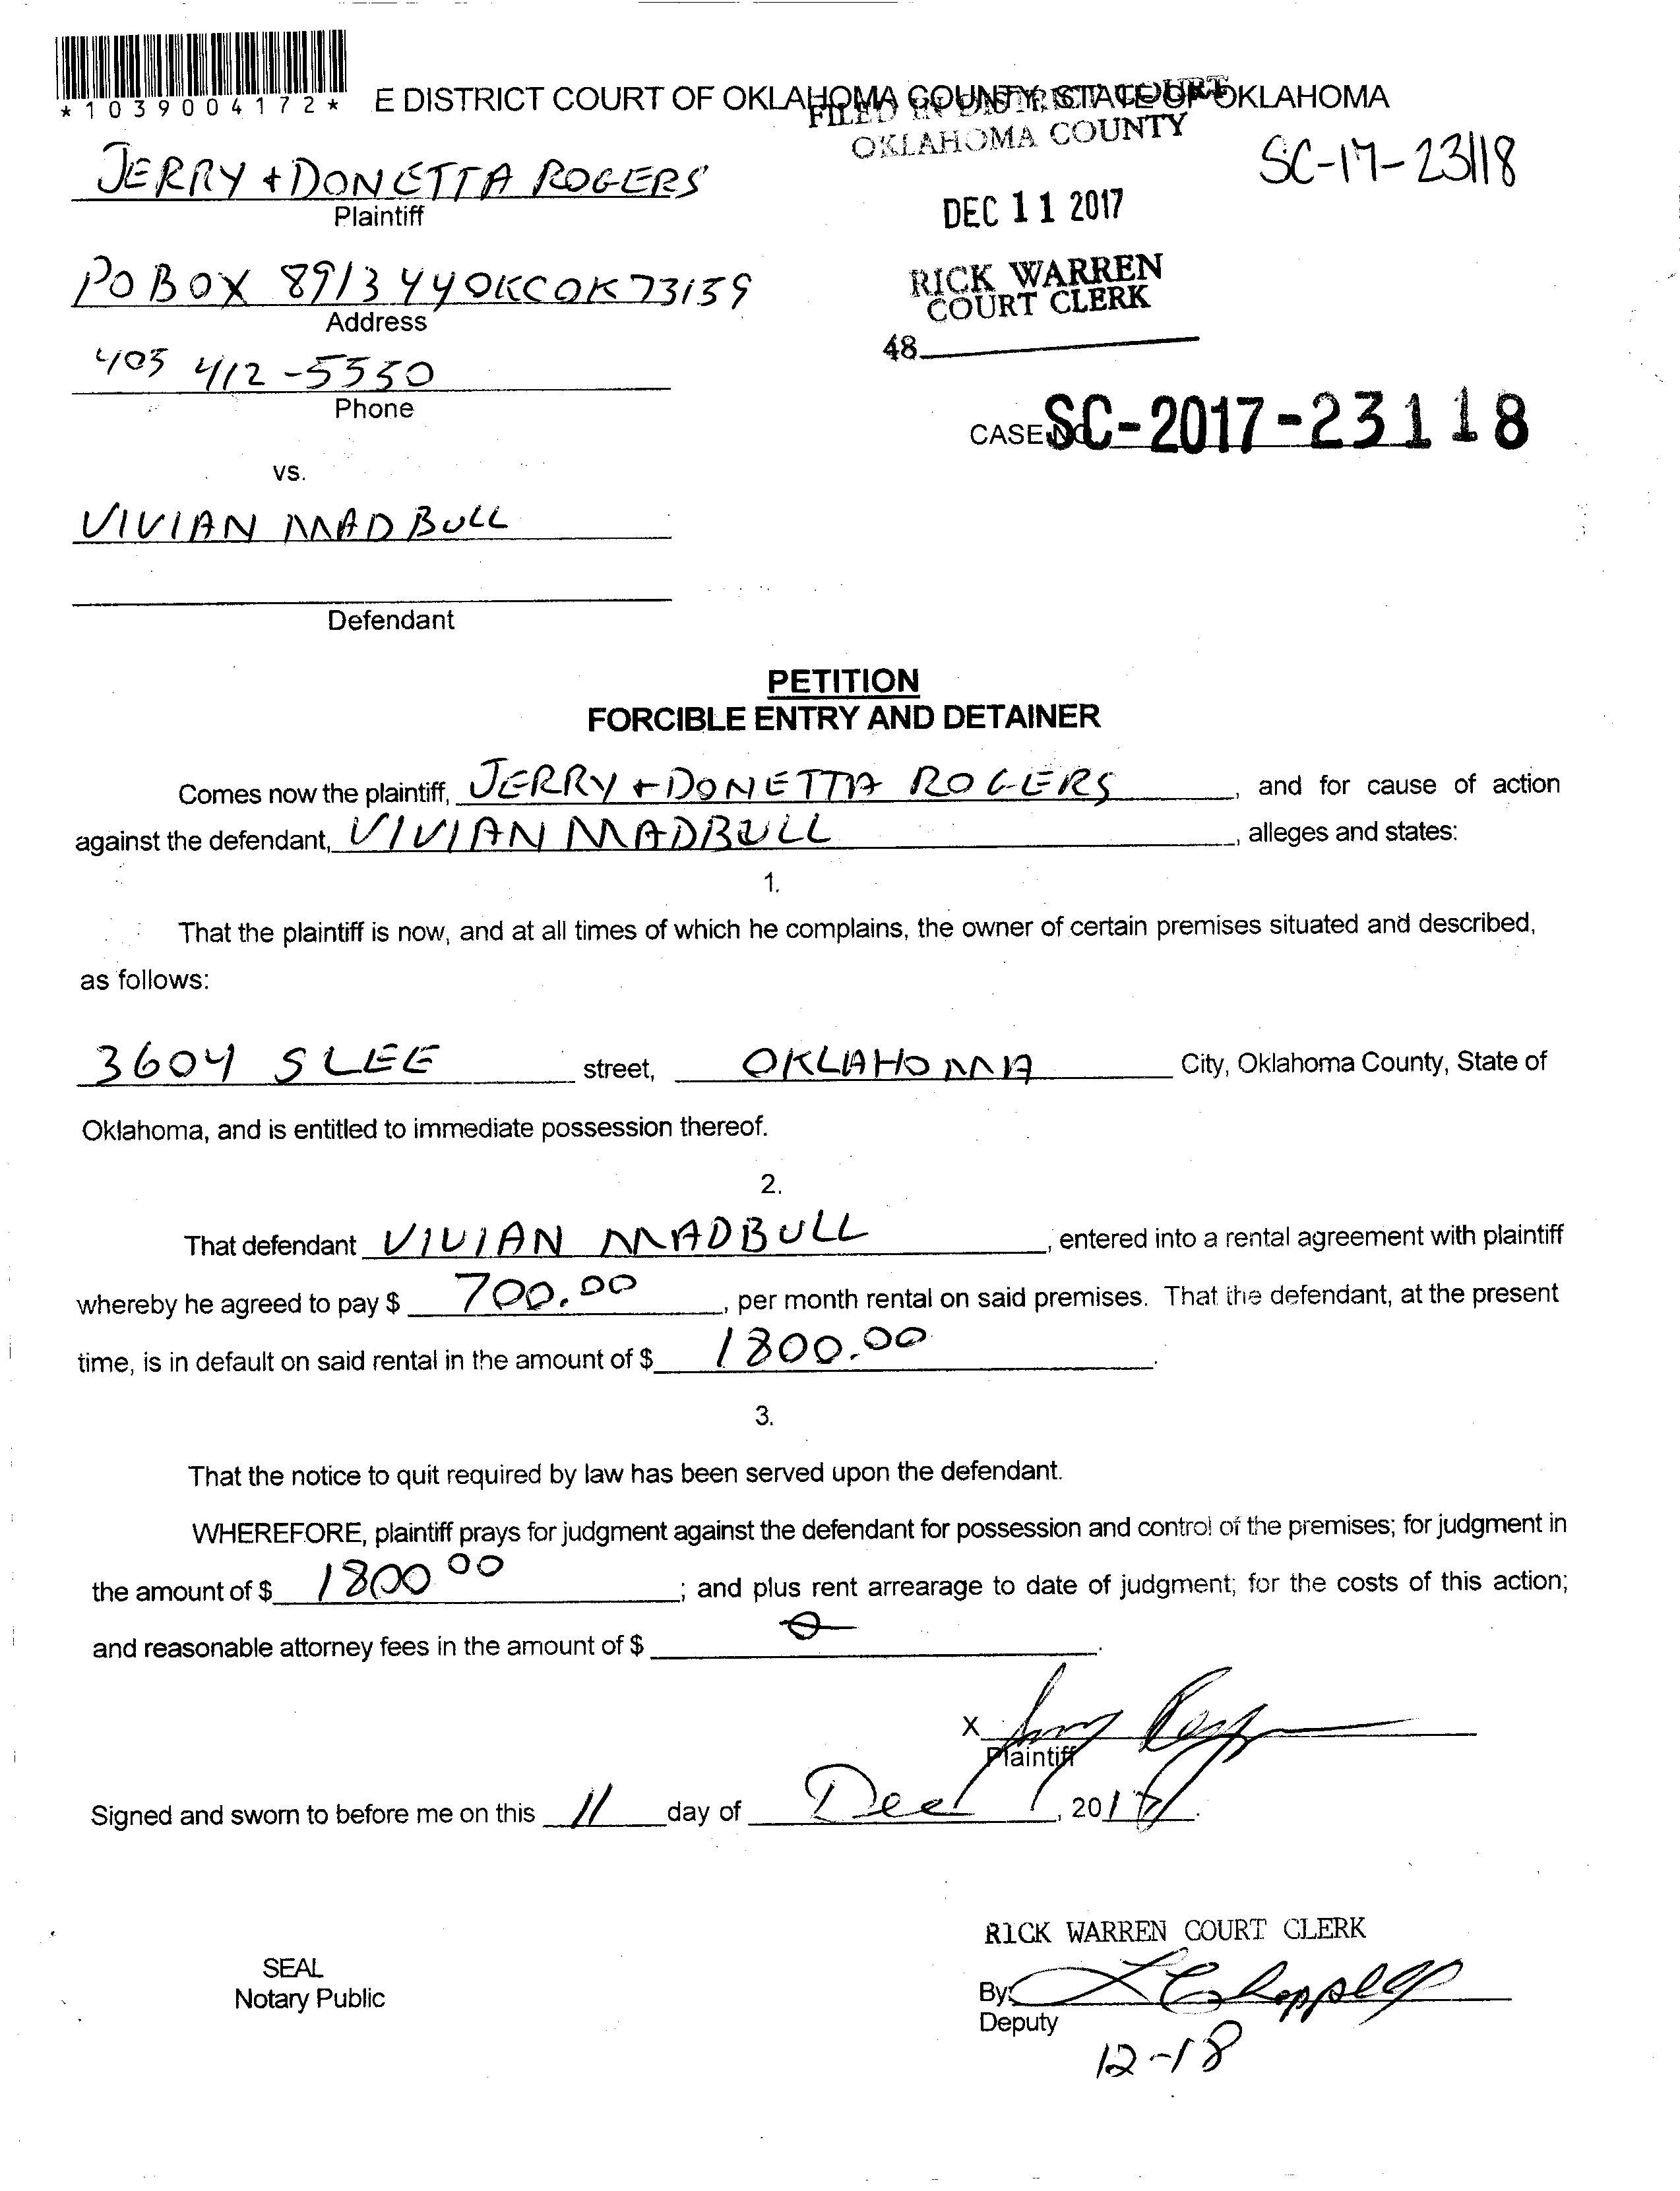 *1039004172*
E DISTRICT COURT OF OKLAHOMA COUNTY, STATE OF OKLAHOMA
FILED IN DISTRICT COURT
OKLAHOMA COUNTY
SC-17-23118
JERRY + DONETTA ROGERS
Plaintiff
DEC 11 2017
PO BOX 891344 OKC OK 73139
Address
RICK WARREN
COURT CLERK
405 412-5550
Phone
48
CASE NO. SC-2017-23118
vs.
VIVIAN MADBULL
Defendant
PETITION
FORCIBLE ENTRY AND DETAINER
Comes now the plaintiff, JERRY + DONETTA ROGERS, and for cause of action
against the defendant, VIVIAN MADBULL, alleges and states:
1.
That the plaintiff is now, and at all times of which he complains, the owner of certain premises situated and described,
as follows:
3604 S LEE street, OKLAHOMA City, Oklahoma County, State of
Oklahoma, and is entitled to immediate possession thereof.
2.
That defendant VIVIAN MADBULL, entered into a rental agreement with plaintiff
whereby he agreed to pay $ 700.00, per month rental on said premises. That the defendant, at the present
time, is in default on said rental in the amount of $ 1800.00.
3.
That the notice to quit required by law has been served upon the defendant.
WHEREFORE, plaintiff prays for judgment against the defendant for possession and control of the premises; for judgment in
the amount of $ 1800 00; and plus rent arrearage to date of judgment; for the costs of this action;
and reasonable attorney fees in the amount of $ 0.
X
Plaintiff
Signed and sworn to before me on this 11 day of Dec, 2017.
RICK WARREN COURT CLERK
SEAL
Notary Public
By:
Deputy
12-18